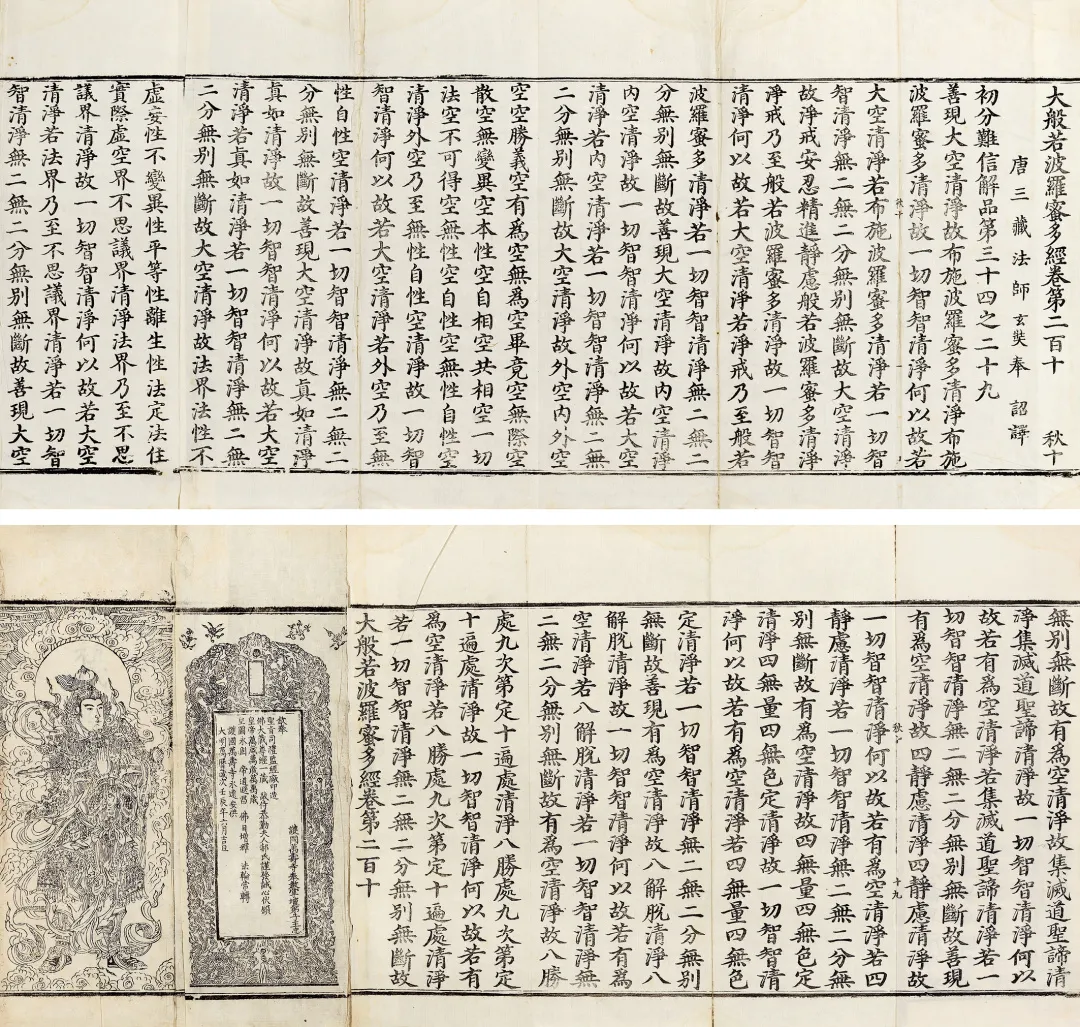 大般若波羅蜜多經卷第二百十 秋十
唐三藏法師玄奘奉 詔譯
初分難信解品第三十四之二十九
善現大空清淨故布施波羅蜜多清淨布施
波羅蜜多清淨故一切智智清淨何以故若
大空清淨若布施波羅蜜多清淨若一切智
智清淨無二無二分無別無斷故大空清淨
故淨戒安忍精進靜慮般若波羅蜜多清淨
淨戒乃至般若波羅蜜多清淨故一切智智
清淨何以故若大空清淨若淨戒乃至般若
波羅蜜多清淨若一切智智清淨無二無二
分無別無斷故善現大空清淨故內空清淨
內空清淨故一切智智清淨何以故若大空
清淨若內空清淨若一切智智清淨無二無
二分無別無斷故大空清淨故外空內外空
空空勝義空有為空無為空畢竟空無際空
散空無變異空本性空自相空共相空一切
法空不可得空無性空自性空無性自性空
清淨外空乃至無性自性空清淨故一切智
智清淨何以故若大空清淨若外空乃至無
性自性空清淨若一切智智清淨無二無二
分無別無斷故善現大空清淨故真如清淨
真如清淨故一切智智清淨何以故若大空
清淨若真如清淨若一切智智清淨無二無
二分無別無斷故大空清淨故法界法性不
虛妄性不變異性平等性離生性法定法住
實際虛空界不思議界清淨法界乃至不思
議界清淨故一切智智清淨何以故若大空
清淨若法界乃至不思議界清淨若一切智
智清淨無二無二分無別無斷故善現大空
無別無斷故有為空清淨故集滅道聖諦清
淨集滅道聖諦清淨故一切智智清淨何以
故若有為空清淨若集滅道聖諦清淨若一
切智智清淨無二無二分無別無斷故善現
有為空清淨故四靜慮清淨四靜慮清淨故
一切智智清淨何以故若有為空清淨若四
靜慮清淨若一切智智清淨無二無二分無
別無斷故有為空清淨故四無量四無色定
清淨四無量四無色定清淨故一切智智清
淨何以故若有為空清淨若四無量四無色
定清淨若一切智智清淨無二無二分無別
無斷故善現有為空清淨故八解脫清淨八
解脫清淨故一切智智清淨何以故若有為
空清淨若八解脫清淨若一切智智清淨無
二無二分無別無斷故有為空清淨故八勝
處九次第定十遍處清淨八勝處九次第定
十遍處清淨故一切智智清淨何以故若有
為空清淨若八勝處九次第定十遍處清淨
若一切智智清淨無二無二分無別無斷故
大般若波羅蜜多經卷第二百十
欽奉
聖旨司禮監經廠印造
皇圖永固 帝道遐昌 佛日增輝 法輪常轉